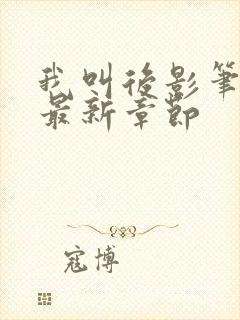 我叫後影筆
最新章節
寇博